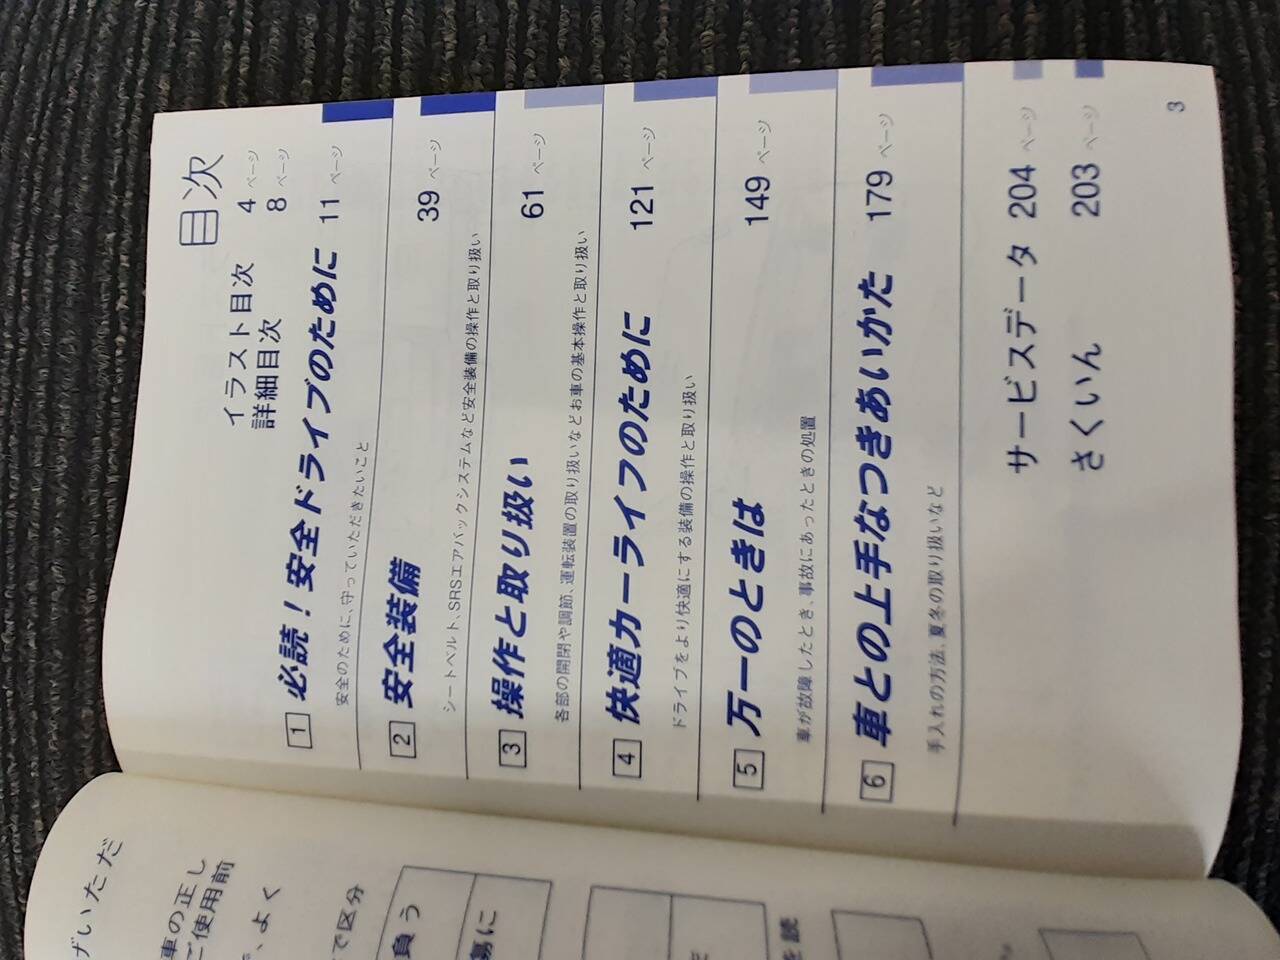 目次
イラスト目次 4 ページ
詳細目次 8 ページ
1 必読！安全ドライブのために 11 ページ
安全のために、守っていただきたいこと
2 安全装備 39 ページ
シートベルト、SRSエアバックシステムなど安全装備の操作と取り扱い
3 操作と取り扱い 61 ページ
各部の開閉や調節、運転装置の取り扱いなどお車の基本操作と取り扱い
4 快適カーライフのために 121 ページ
ドライブをより快適にする装備の操作と取り扱い
5 万一のときは 149 ページ
車が故障したとき、事故にあったときの処置
6 車との上手なつきあいかた 179 ページ
手入れの方法、夏冬の取り扱いなど
サービスデータ 204 ページ
さくいん 203 ページ
3
いただ
車の正し
ご使用前
、よく
で区分
負う
傷に
を読